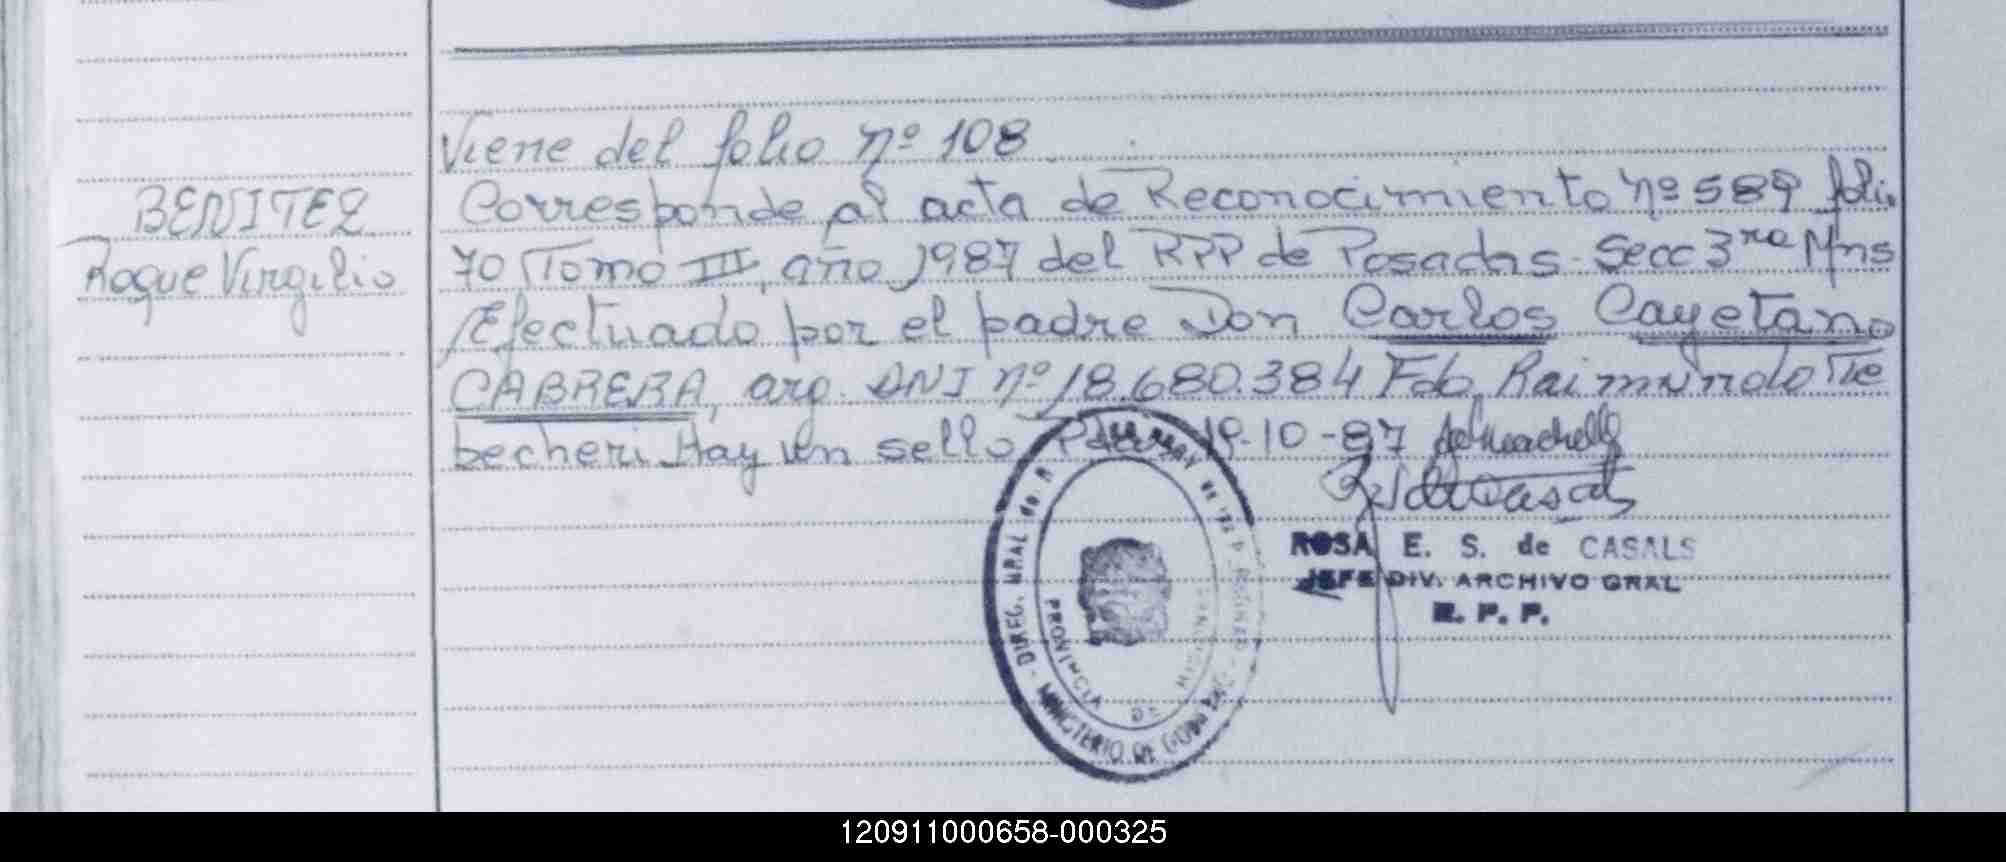 Viene del folio nº 108
BENITEZ
Roque Virgilio
Corresponde al acta de Reconocimiento nº 589 folio
70 Tomo III, año 1987 del RPP de Posadas - Secc 3ra Mns
Efectuado por el padre Don Carlos Cayetano
CABRERA, arg. DNI nº 18.680.384 Fdo. Raimundo Tie
becheri Hay un sello 19-10-87
ROSA E. S. de CASALS
JEFE DIV. ARCHIVO GRAL
R. P. P.
DIREC. GRAL de
MINISTERIO DE
PROVINCIA DE MISIONES
120911000658-000325